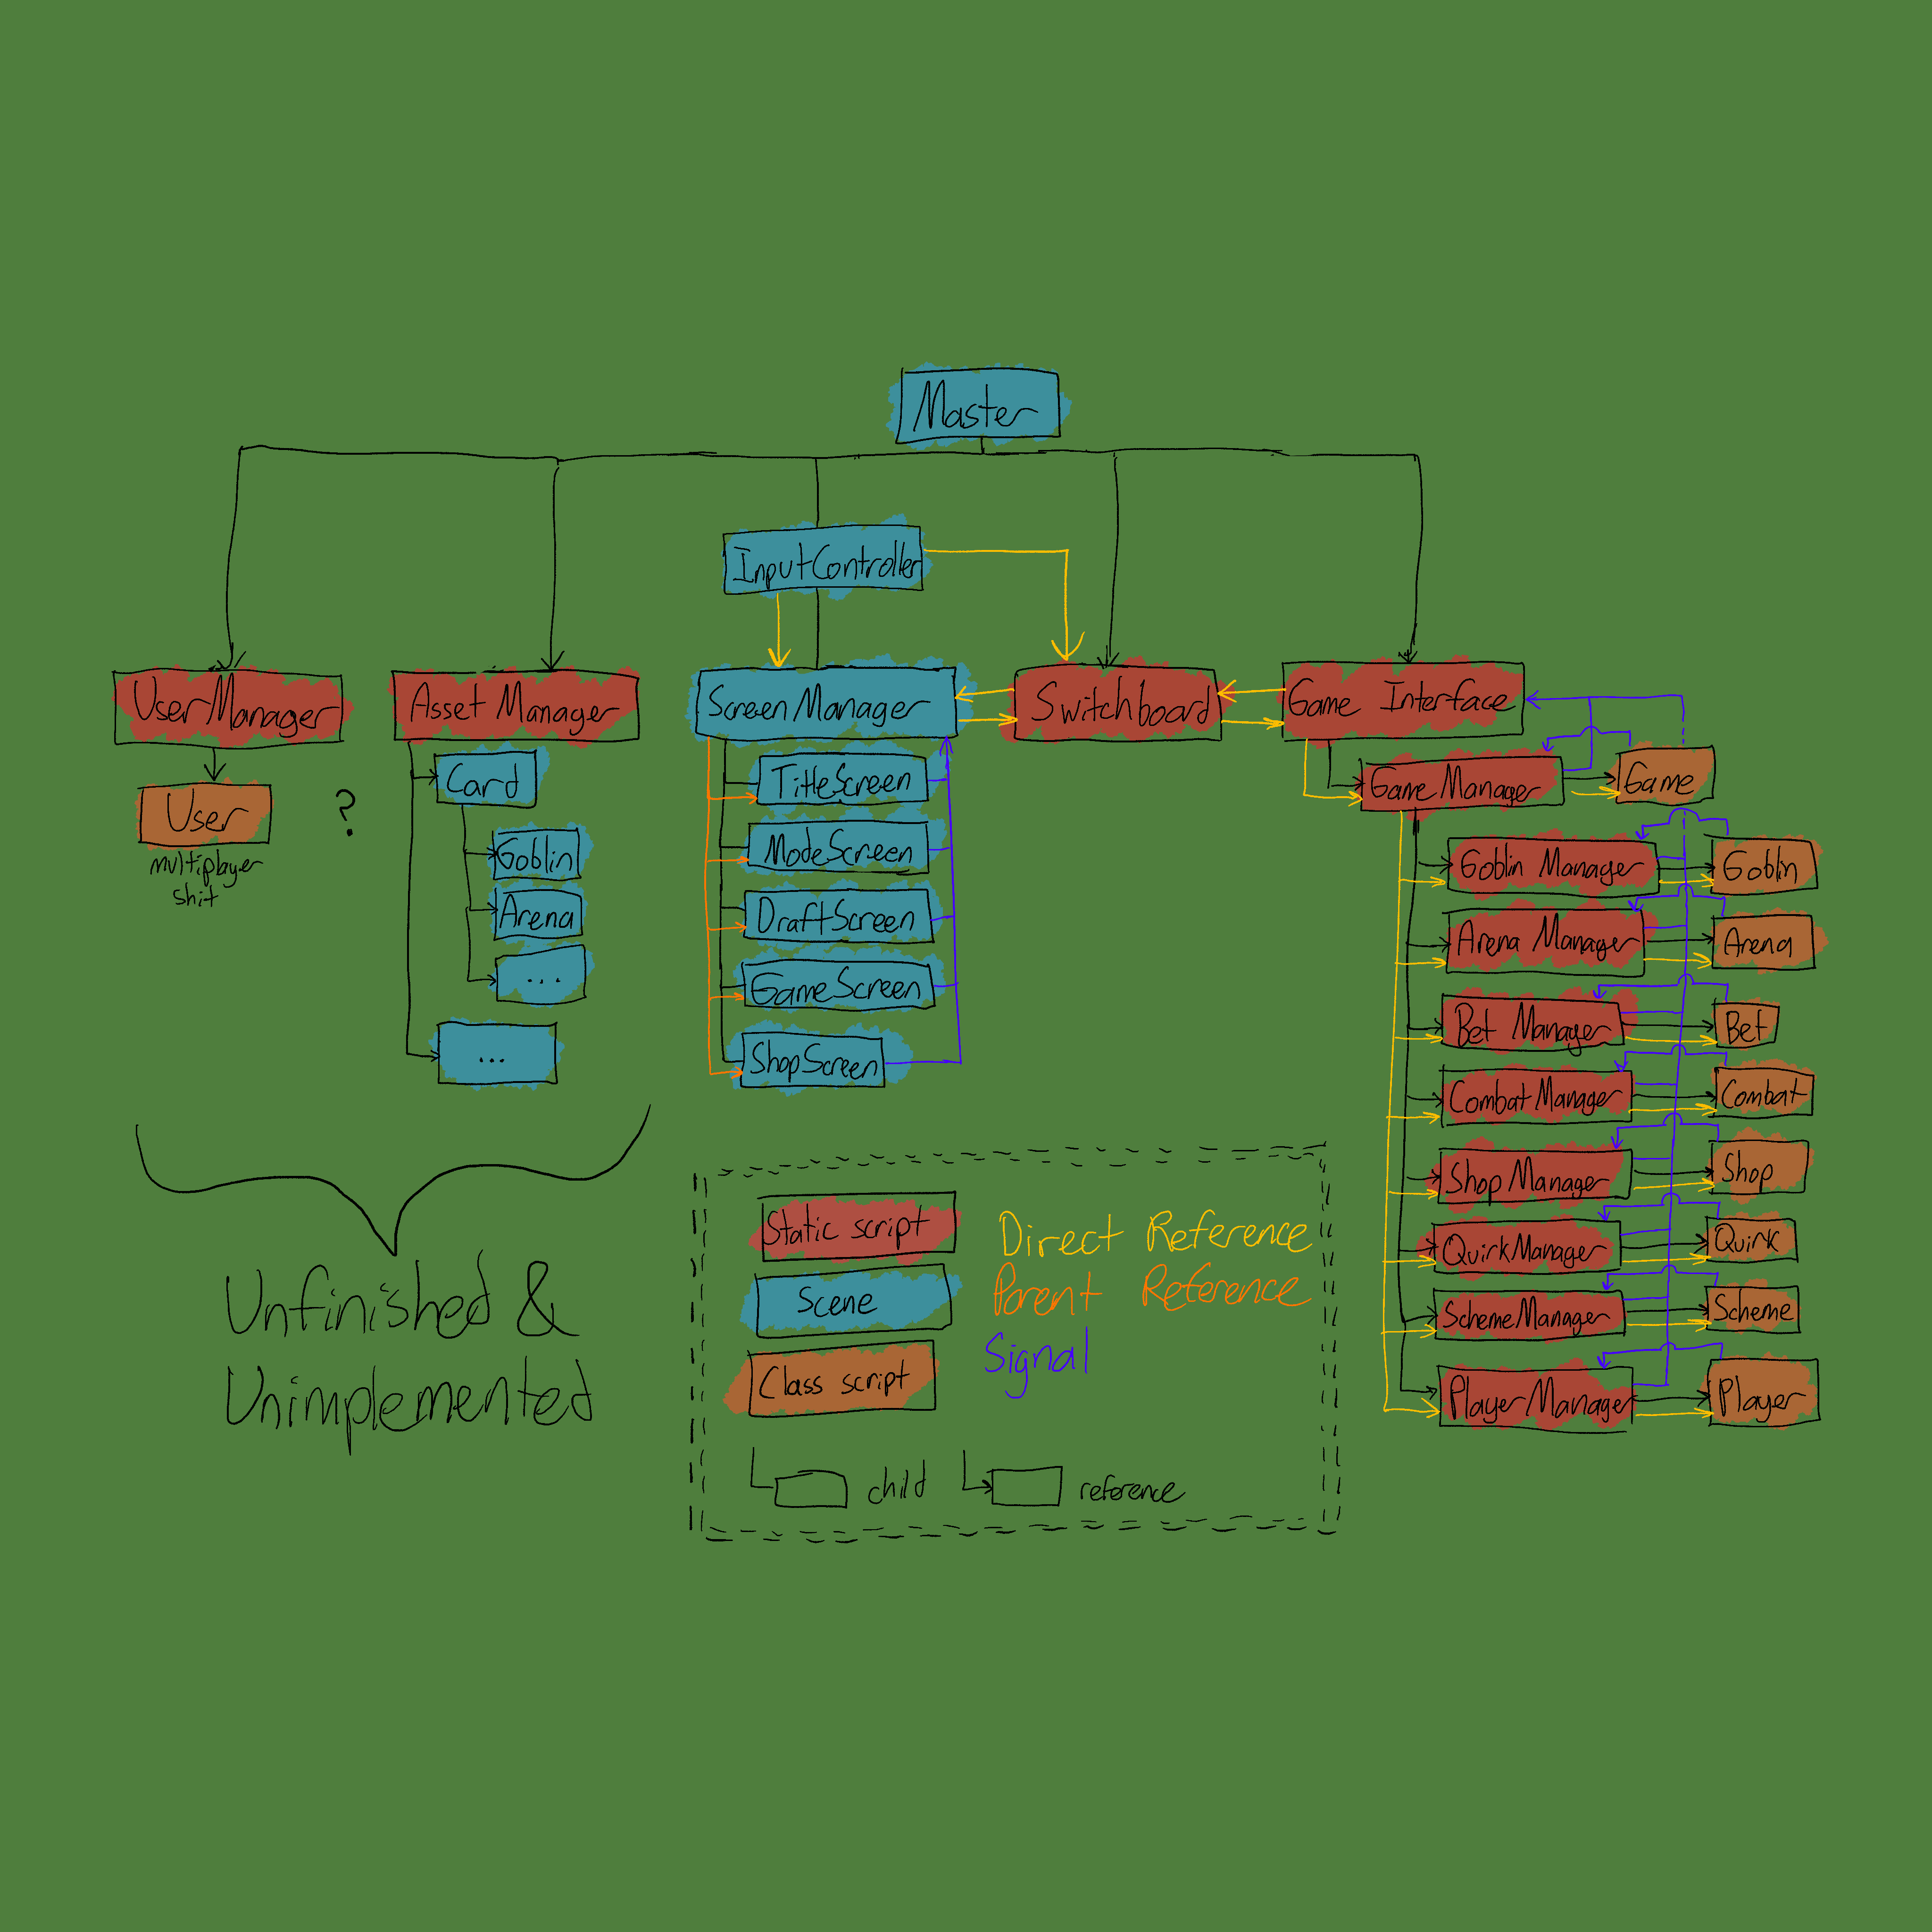 Master
InputController
UserManager
Asset Manager
ScreenManager
Switchboard
Game Interface
User
multiplayer
shit
?
Card
Goblin
Arena
...
...
TitleScreen
ModeScreen
DraftScreen
GameScreen
ShopScreen
Game Manager
Game
Goblin Manager
Goblin
Arena Manager
Arena
Bet Manager
Bet
Combat Manager
Combat
Shop Manager
Shop
QuirkManager
Quirk
SchemeManager
Scheme
PlayerManager
Player
Unfinished &
Unimplemented
Static script
Scene
Class script
Direct Reference
Parent Reference
Signal
child
reference